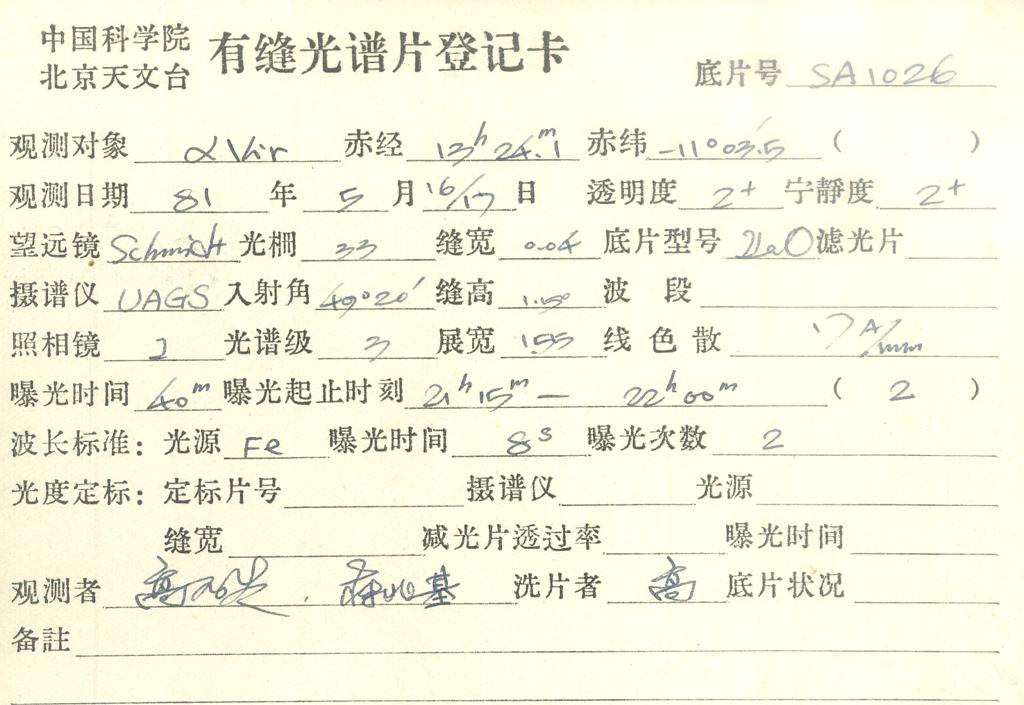 中国科学院
北京天文台
有缝光谱片登记卡
底片号 SA1026
观测对象 α Vir 赤经 13h 24m.1 赤纬 -11°03.5′ ( )
观测日期 81 年 5 月 16/17 日 透明度 2+ 宁静度 2+
望远镜 Schmidt 光栅 33 缝宽 0.04 底片型号 IIaO 滤光片
摄谱仪 UAGS 入射角 49°20′ 缝高 波 段
照相镜 2 光谱级 3 展宽 1.55 线 色 散 17 A/mm
曝光时间 40m 曝光起止时刻 21h 15m — 22h 00m ( 2 )
波长标准: 光源 Fe 曝光时间 8s 曝光次数 2
光度定标: 定标片号 摄谱仪 光源
缝宽 减光片透过率 曝光时间
观测者 高 洗片者 高 底片状况
备註